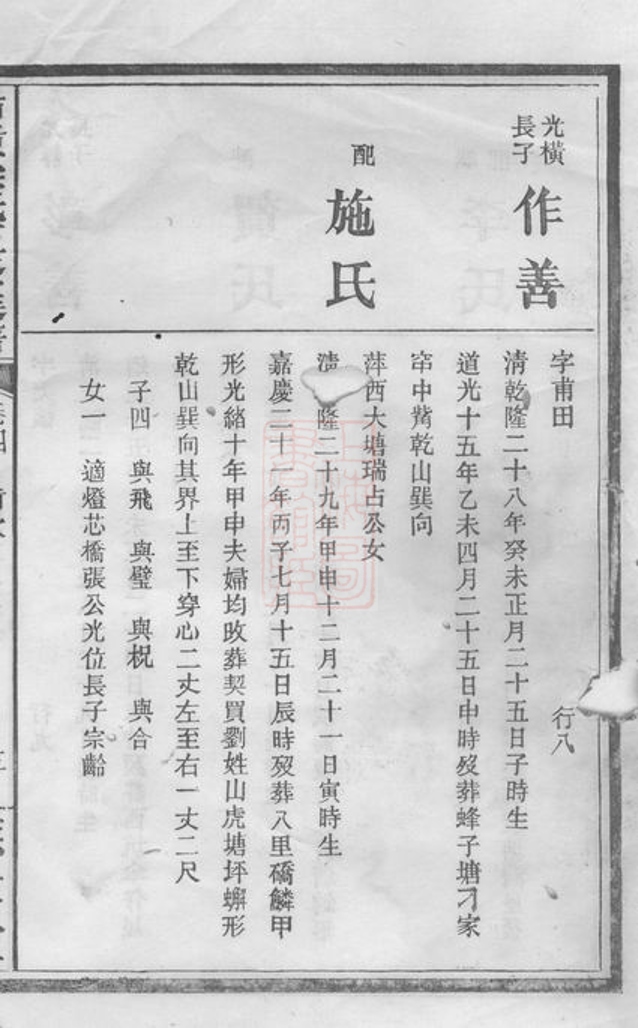 光橫
長子
作善
字甫田 行八
清乾隆二十八年癸未正月二十五日子時生
道光十五年乙未四月二十五日申時歿葬蜂子塘刁家
窂中觜乾山巽向
配
施氏
萍西大塘瑞占公女
清 隆二十九年甲申十二月二十一日寅時生
嘉慶二十一年丙子七月十五日辰時歿葬八里礄麟甲
形光緒十年甲申夫婦均改葬契買劉姓山虎塘坪蠏形
乾山巽向其界上至下穿心二丈左至右一丈二尺
子四 與飛 與璧 與柷 與合
女一 適燈芯橋張公光位長子宗齡